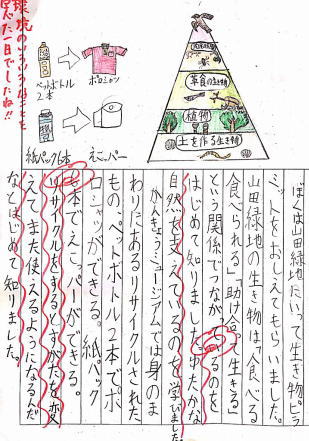 環境のいろいろなことを
学んだ一日でしたね!!
ペットボトル
2本
ポロシャツ
紙パック6本
えこっパー
草食の生き物
植物
土を作る生き物
ぼくは山田緑地にいって生き物ピラ
ミットをおしえてもらいました。
山田緑地の生き物は「食べる
食べられる」「助け合って生きる」
という関係でつながっているのを
はじめて知りました。
自然を支えているのを学びました。
かんきょうミュージアムでは身のま
わりにあるリサイクルされた
もの、ペットボトル2本でポ
ロシャツができる。紙パック
6本でえこっパーができる。
リサイクルをするとすがたを変
えてまた使えるようになるんだ
なとはじめて知りました。